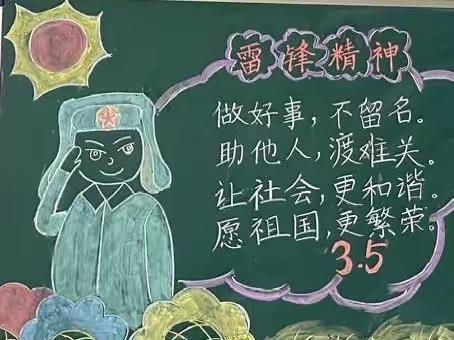 雷锋精神
做好事，不留名。
助他人，渡难关。
让社会，更和谐。
愿祖国，更繁荣。
3.5